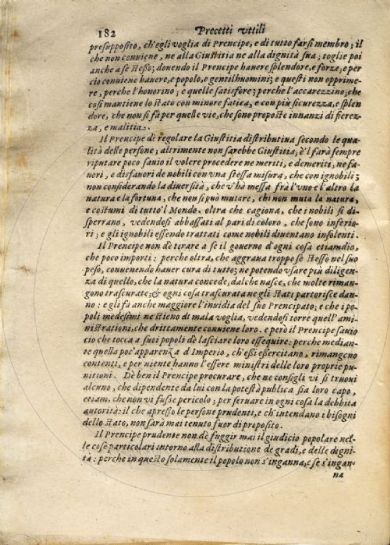 182 Precetti vtili
presupposto, ch'egli voglia di Prencipe, e di tutto farsi membro; il
che non conuiene, ne alla Giustitia ne alla dignità sua; toglie poi
anche a se stesso; douendo il Prencipe hauere splendore, e forze; e per
ciò conuiene hauere, e popolo, e gentilhuomini; e questi non opprime-
re, perche l'honorino; e quelle satisfare; perche l'accarezzino; che
cosi mantiene lo stato con minore fatica, e con più sicurezza, e splen
dore, che non si fà per quelle vie, che sono proposte innanzi di fierez
za, e malitia.
Il Prencipe dè regolare la Giustitia distributiua secondo le qua
lità delle persone; altrimente non sarebbe Giustitia; è'l farà sempre
riputare poco sauio il volere procedere ne meriti, e demeriti, ne fa
uori, e disfauori de nobili con vna stessa misura, che con ignobili;
non considerando la diuersità, che v'hò messa frà l'vno e l'altro la
natura e la fortuna, che non si può mutare, chi non muta la natura,
e costumi di tutto'l Mondo. oltra che cagiona, che i nobili si di-
sperano, vedendosi abbassati al pari di coloro, che sono inferio-
ri; e gli ignobili essendo trattati come nobili diuentano insolenti.
Il Prencipe non dè tirare a se il gouerno d'ogni cosa etiamdio,
che poco importi: perche oltra, che aggraua troppo se stesso nel suo
peso, conuenendo hauer cura di tutto; ne potendo vsare più diligen
za di quello, che la natura concede, dal che nasce, che molte riman-
gono trascurate; & ogni cosa trascurata negli stati partorisce dan-
no: e gli fà anche maggiore l'inuidia del suo Principato; e che i po
poli medesimi ne stieno di mala voglia, vedendosi torre quell'am-
ministrationi, che drittamente conuiene loro. però il Prencipe sauio
ciò che tocca a suoi popoli dè lasciare loro essequire: perche median-
te quella poc'apparenza d'Imperio, ch'essi esercitano, rimangono
contenti, e per vtente hanno l'essere ministri delle loro proprie pu-
nitioni. Dè ben il Prencipe procurare, che ne consigli vi si truoui
alcuno, che dipendente da lui con la potestà publica sia loro capo,
etiam, che non vi fusse pericolo; per seruare in ogni cosa la debbita
autorità: il che apresso le persone prudenti, e ch'intendano i bisogni
dello stato, non sarà mai tenuto fuor di proposito.
Il Prencipe prudente non dè fuggir mai il giudicio popolare nel-
le cose particolari intorno alla distributione de gradi, e delle digni-
tà: perche in questo solamente il popolo non s'inganna, e se s'ingan-
na